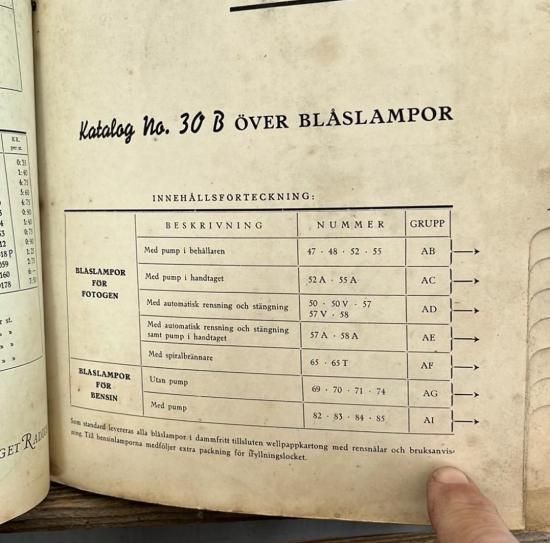 Katalog No. 30 B ÖVER BLÅSLAMPOR
INNEHÅLLSFORTECKNING:
BESKRIVNING NUMMER GRUPP
BLÅSLAMPOR FÖR FOTOGEN
Med pump i behållaren 47 · 48 · 52 · 55 AB
Med pump i handtaget 52 A · 55 A AC
Med automatisk rensning och stängning 50 · 50 V · 57
57 V · 58 AD
Med automatisk rensning och stängning
samt pump i handtaget 57 A · 58 A AE
Med spiralbrännare 65 · 65 T AF
BLÅSLAMPOR FÖR BENSIN
Utan pump 69 · 70 · 71 · 74 AG
Med pump 82 · 83 · 84 · 85 AI
Som standard levereras alla blåslampor i dammfritt tillsluten wellpappkartong med rensnålar och bruksanvis-
ning. Till bensinlamporna medföljer extra packning för ifyllningslocket.
Kr.
per st.
0:35
1:40
4:75
5:60
4:75
0:90
1:40
0:75
0:90
18 P 1:25
059 2:75
160 6:—
0178 7:50
r st.
» »
» »
» »